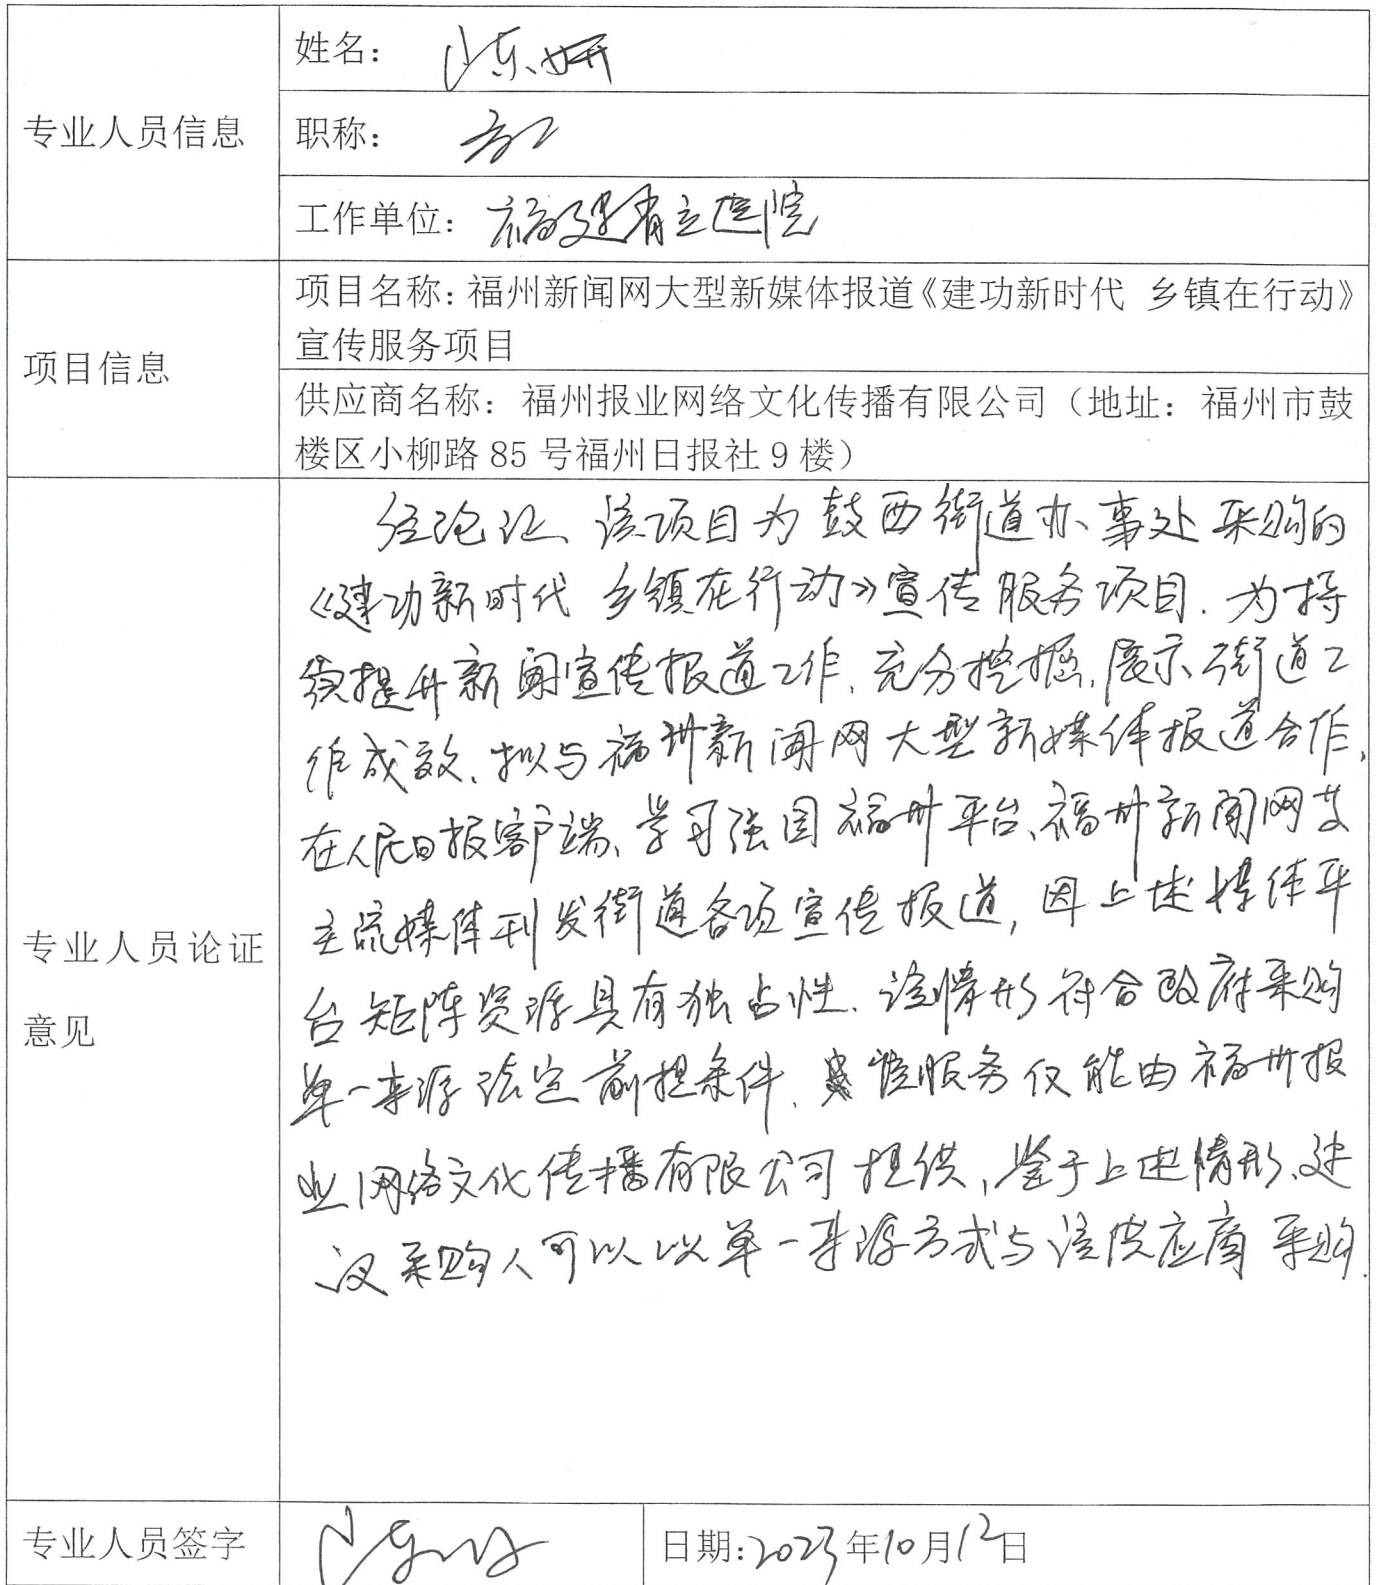 专业人员信息
姓名：陈妍
职称：高工
工作单位：福建省立医院
项目信息
项目名称：福州新闻网大型新媒体报道《建功新时代 乡镇在行动》
宣传服务项目
供应商名称：福州报业网络文化传播有限公司（地址：福州市鼓
楼区小柳路 85 号福州日报社 9 楼）
专业人员论证
意见
经论证、该项目为鼓西街道办事处采购的
《建功新时代 乡镇在行动》宣传服务项目. 为持
续提升新闻宣传报道工作, 充分挖掘, 展示街道工
作成效、拟与福州新闻网大型新媒体报道合作,
在人民日报客户端、学习强国福州平台、福州新闻网等
主流媒体刊发街道各项宣传报道, 因上述媒体平
台矩阵资源具有独占性. 该情形符合政府采购
单一来源法定前提条件. 服务仅能由福州报
业网络文化传播有限公司提供, 鉴于上述情形、建
议采购人可以以单一来源方式与该供应商采购.
专业人员签字
陈妍
日期:2023年10月12日